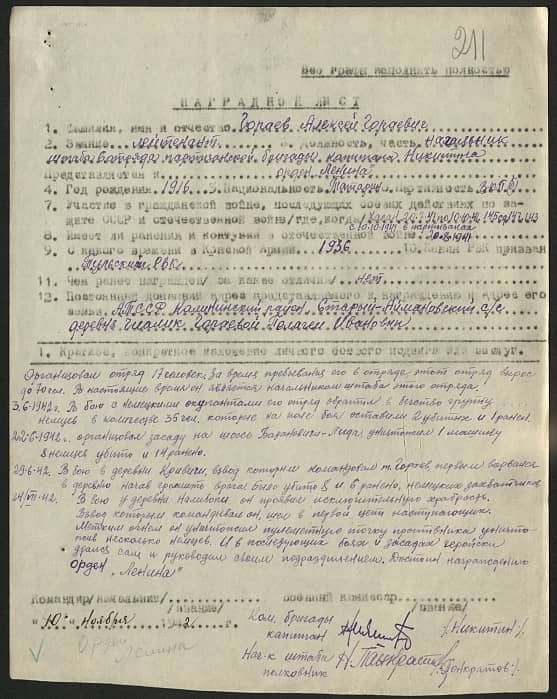 211
Все графы заполнять полностью
НАГРАДНОЙ ЛИСТ
1. Фамилия, имя и отчество Гораев Алексей Гораевич
2. Звание лейтенант 3. Должность, часть Начальник
штаба отряда партизанской бригады капитана Никитина
Представляется к орден Ленина
4. Год рождения 1916 5. Национальность Татарин 6. Партийность ВКП(б)
7. Участие в гражданской войне, последующих боевых действиях по за-
щите СССР и отечественной войне/где, когда/
с 10.10.1941 в партизанах
8. Имеет ли ранения и контузии в отечественной войне
9. С какого времени в Красной Армии 1936 10. Каким РВК призван
Тульским РВК
11. Чем ранее награжден/за какие отличия/ нет
12. Постоянный домашний адрес представляемого к награждению и адрес его
семьи АТССР Калининский район, Старый с/с
деревня Гораевой Пелагеи Ивановны
1. Краткое, конкретное изложение личного боевого подвига или заслуг.
Организовал отряд 17 человек. За время пребывания его в отряде этот отряд вырос
до 70 чел. В настоящее время он является начальником штаба этого отряда.
3.6-1942 г. В бою с немецкими оккупантами его отряд обратил в бегство группу
немцев в количестве 35 чел. которые на поле боя оставили 2 убитых и 1 ранен.
22.6-1942 г. организовал засаду на шоссе Барановичи-Лида уничтожил 1 машину
8 немцев убито и 14 ранено.
29.6-42. В бою в деревни Кривичи, взвод которым командовал т. Гораев, первым ворвался
в деревню начав громить врага было убито 8 и 6 ранено, немецких захватчиков
24/VII-42. В бою у деревни Налибоки он проявил исключительную храбрость.
Взвод которым командовал он, шел в первой цепи наступающих.
Метким огнем он уничтожил пулеметную точку противника уничто
жив несколько немцев. И в последующих боях и засадах геройски
дрался сам и руководил своим подразделением. Достоин награждению
Орден „Ленина"
Командир/начальник/ Военный комиссар
/звание/ /звание/
"10" Ноября 1942 г.
Ком. бригады
капитан /Никитин/
Орден
Ленина
Нач-к штаба
полковник /Панкратов/